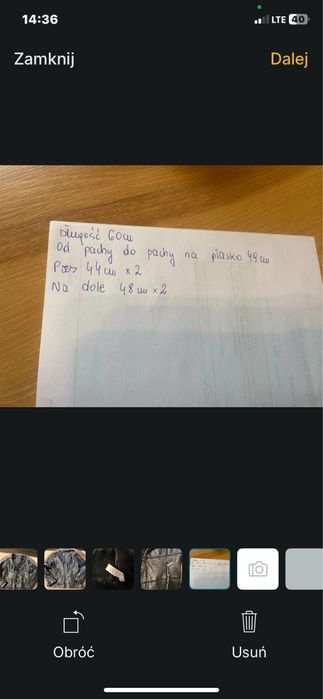 14:36
LTE 40
Zamknij
Dalej
Długość 60cm
Od pachy do pachy na płasko 49cm
Pas 44cm x 2
Na dole 48cm x 2
Obróć
Usuń